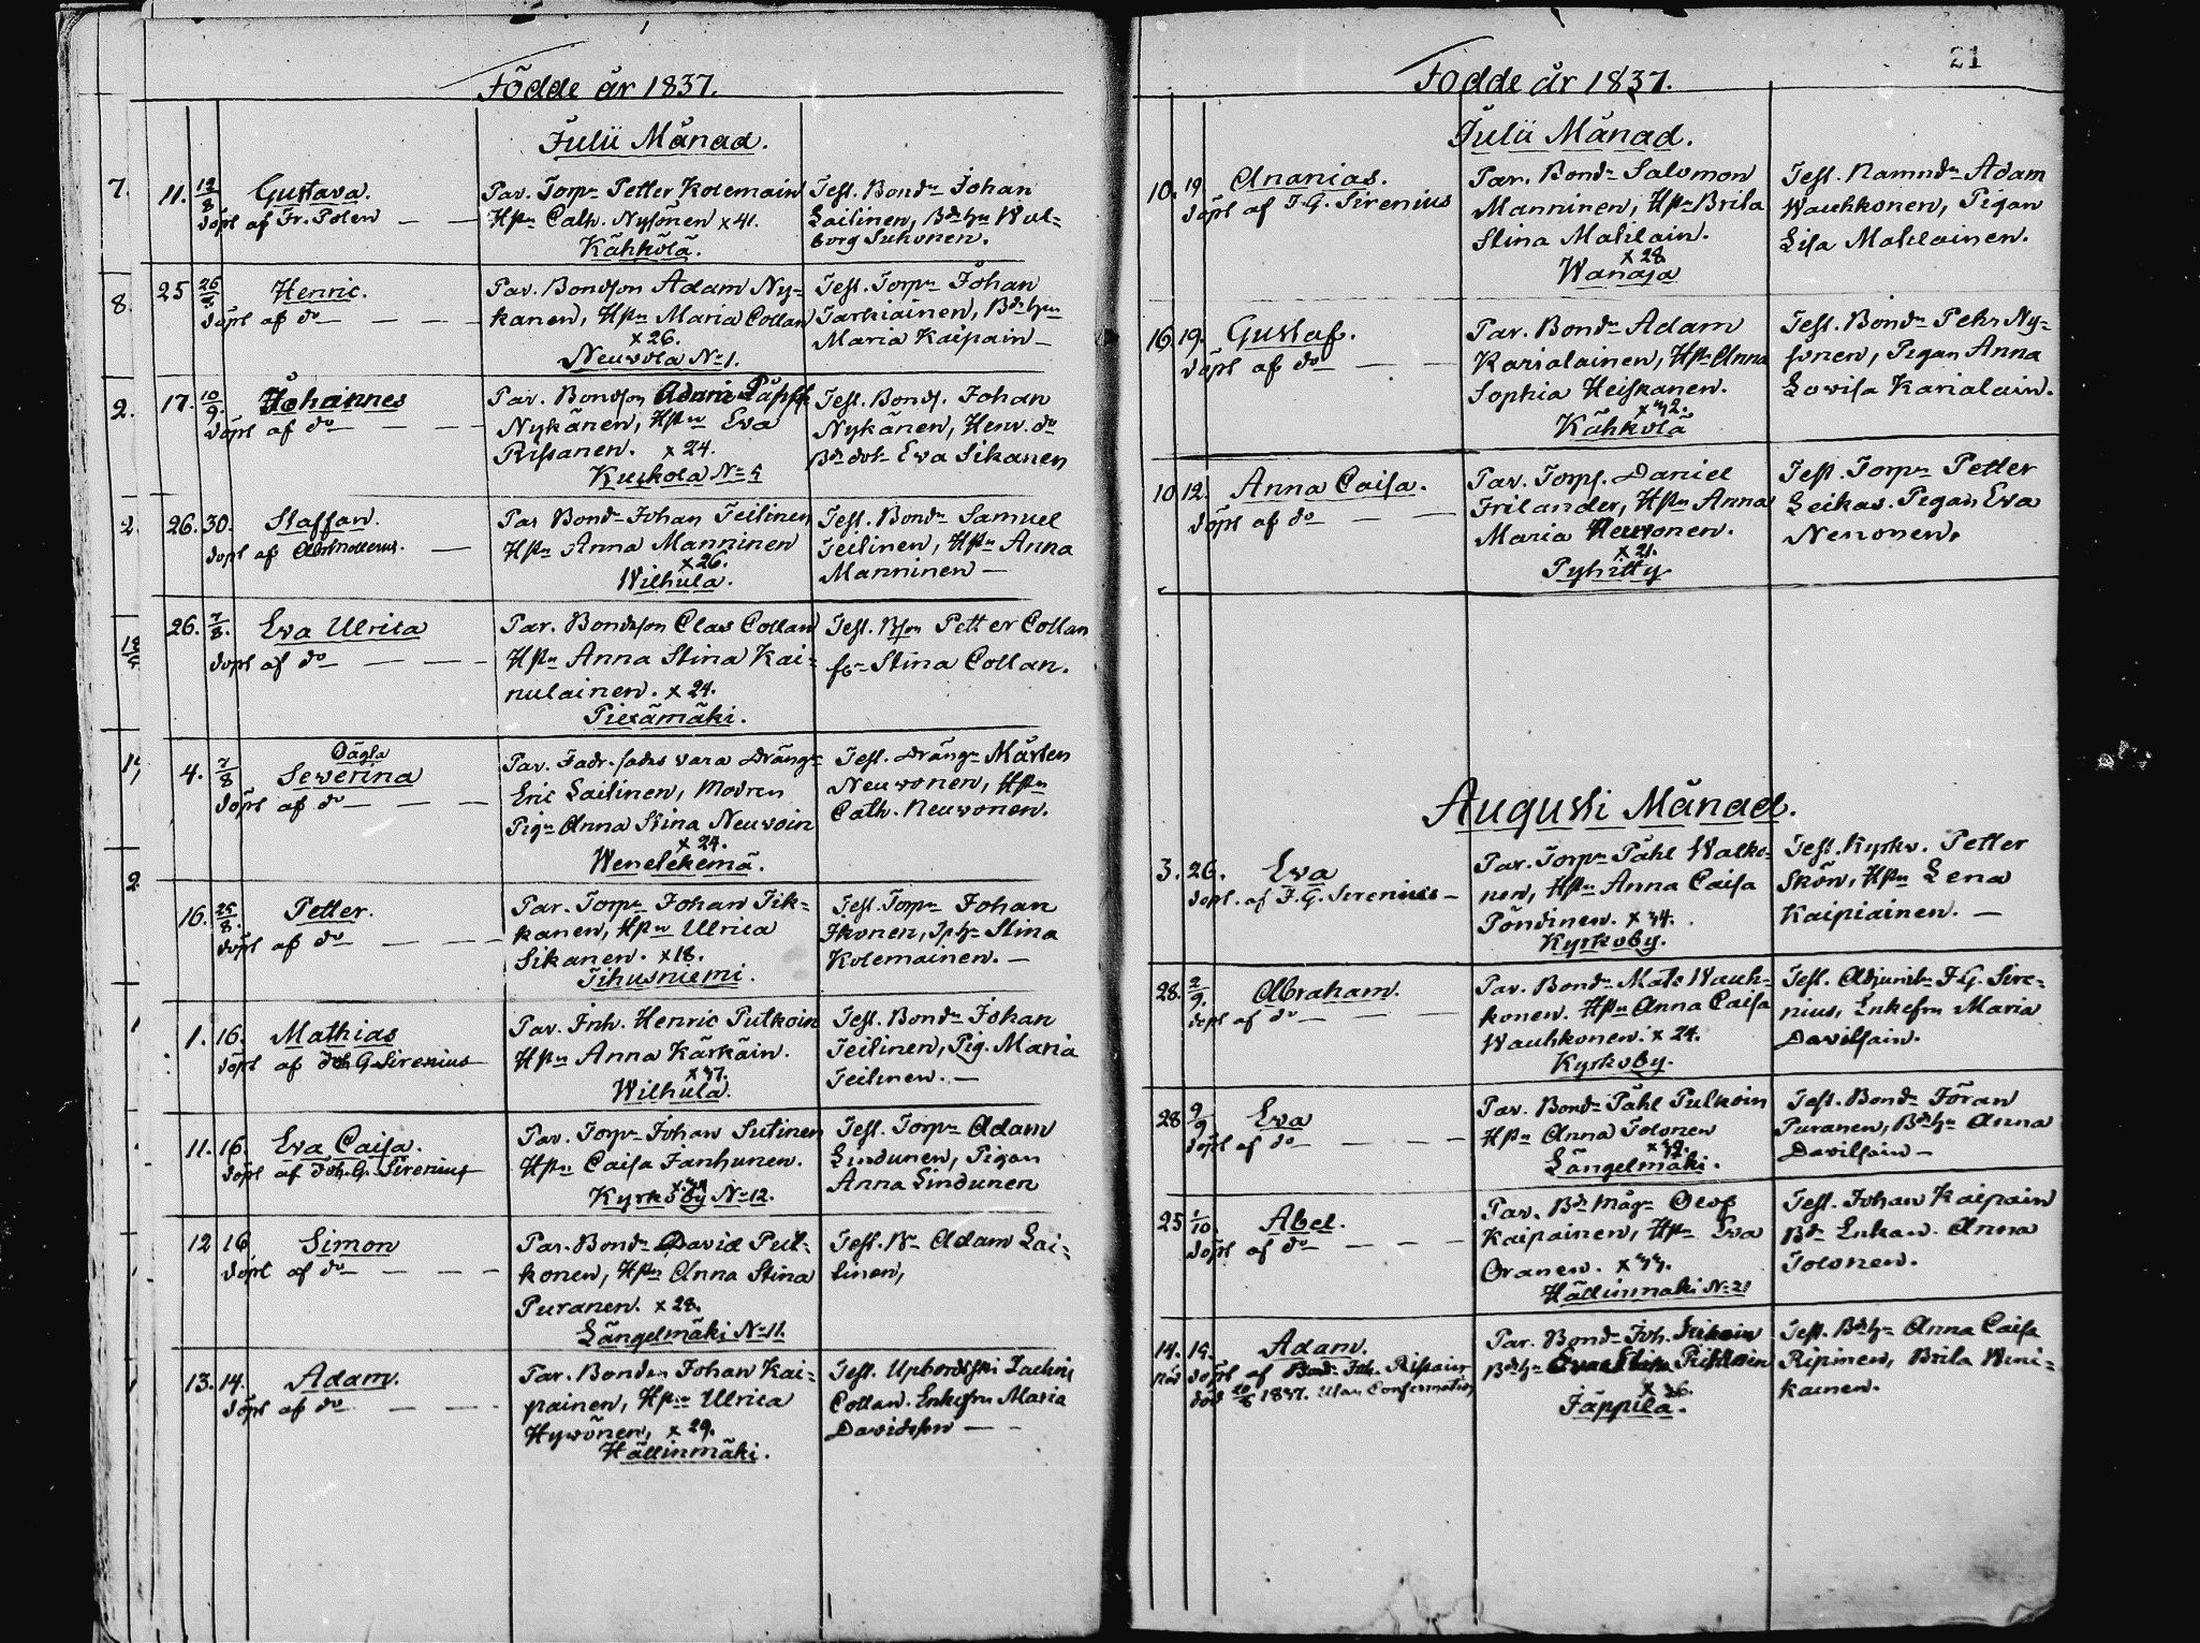 Födde år 1837.
Julii Månad.
7.
11. 12/8 Gustava.
döpt af Fr. Polen
Par. Torpn Petter Kolemain
Hstn Cath. Nysönen x 41.
Kähkölä.
Test. Bondn Johan
Lailinen, Bdhn Wal=
borg Suhonen.
8.
25 26/8 Henric.
döpt af do
Par. Bondson Adam Ny=
kanen, Hstn Maria Collan
x 26.
Neuvola No 1.
Test. Torpn Johan
Tarkiainen, Bdhn
Maria Kaipain
2.
17. 10/9. Johannes
döpt af do
Par. Bondson
Nykänen, Hstn Eva
Rissanen. x 24.
Kuikola No
Test. Bonds. Johan
Nykänen, Henr. do
Bddotr Eva Sikanen
2.
26. 30. Staffan.
döpt af
Par Bondn Johan Teitinen
Hstn Anna Manninen
x 26.
Wilhula.
Test. Bondn Samuel
Teitinen, Hstn Anna
Manninen
26. 7/8. Eva Ulrica
döpt af do
Par. Bondeson Clas Collan
Hstn Anna Stina Kai=
nulainen. x 24.
Piexämäki.
Test. Bson Petter Collan
Stina Collan.
4. 7/8 Oägta
Severina
döpt af do
Par. Fadr. sades vara Drängn
Eric Laitinen, Modren
Pign Anna Stina Neuvoin
x 24.
Wenetekemä.
Test. Drängn Mårten
Neuvonen, Hstn
Cath. Neuvonen.
2.
16. 25/8. Petter.
döpt af do
Par. Torpn Johan Tik=
kanen, Hstn Ulrica
Sikanen. x 18.
Tihusniemi.
Test. Torpn Johan
Ikonen, Tphn Stina
Kolemainen.
1. 16. Mathias
döpt af Joh G Sirenius
Par. Inh. Henric Pulkoin
Hstn Anna Kärkäin.
x 37.
Wilhula.
Test. Bondn Johan
Teitinen, Pig. Maria
Teitinen.
11. 16. Eva Caisa.
döpt af Joh. G. Sirenius
Par. Torpn Johan Sutinen
Hstn Caisa Janhunen.
Kyrkoby No 12.
Test. Torpn Adam
Lindunen, Pigan
Anna Lindunen
12 16 Simon
döpt af do
Par. Bondn David Pul=
konen, Hstn Anna Stina
Puranen. x 28.
Längelmäki No 11.
Test. Bn Adam Lai=
tinen,
13. 14. Adam.
döpt af do
Par. Bonden Johan Kai=
painen, Hstn Ulrica
Hyvönen, x 29.
Hällinmäki.
Test. Upbördsskr
Collan. Enkefru Maria
Davidsson
21
Födde år 1837.
Julii Månad.
10. 19 Ananias.
döpt af J. G. Sirenius
Par. Bondn Salomon
Manninen, Hstn Brita
Stina Matilain.
x 28.
Wanaja
Test. Nämndn Adam
Wauhkonen, Pigan
Lisa Matilainen.
16. 19. Gustaf.
döpt af do
Par. Bondn Adam
Karialainen, Hstn Anna
Sophia Heiskanen.
x 32.
Kähkölä
Test. Bondn Pehr Ny=
sonen, Pigan Anna
Lovisa Karialain.
10 12. Anna Caisa.
döpt af do
Par. Torps. Daniel
Frilander, Hstn Anna
Maria Neuvonen.
x 21.
Pyhitty
Test. Torpn Petter
Leikas. Pigan Eva
Nenonen.
Augusti Månad.
3. 26. Eva
döpt. af J. G. Sirenius
Par. Torpn Påhl Walko=
nen, Hstn Anna Caisa
Pöndinen. x 34.
Kyrkoby.
Test. Kyrkv. Petter
Skön, Hstn Lena
Kaipiainen.
28. 2/9. Abraham.
döpt af do
Par. Bondn Mats Wauh=
konen. Hstn Anna Caisa
Wauhkonen. x 24.
Kyrkoby.
Test. Adjunkt J. G. Sire=
nius, Enkefru Maria
Davidsain.
28 9/9 Eva
döpt af do
Par. Bondn Påhl Pulkoin
Hstn Anna Tolonen
Längelmäki.
Test. Bondn Jöran
Puranen, Bdhn Anna
Davilsain
25 1/10. Abel.
döpt af do
Par. Bdmågn Olof
Kaipainen, Hstn Eva
Oranen. x 33.
Hällinmäki No 21
Test. Johan Kaipain
Bdn Enkan Anna
Tolonen.
14. 14. Adam.
döpt af Bond. Joh. Rissain
död 1837. Utan Confirmation
Par. Bondn Joh.
Bdhn
x 36.
Jäppilä.
Test. Bdhn Anna Caisa
Ripinen, Brita Weni=
kainen.